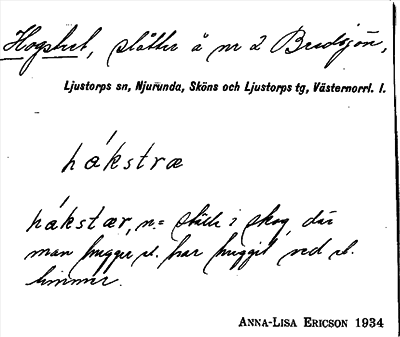 Hogstret, slåtter å nr 2 Bredsjön,
Ljustorps sn, Njurunda, Sköns och Ljustorps tg, Västernorrl. l.
hákstræ
hákstær, n = ställe i skog, där
man hugger el. har huggit ved el.
timmer.
ANNA-LISA ERICSON 1934